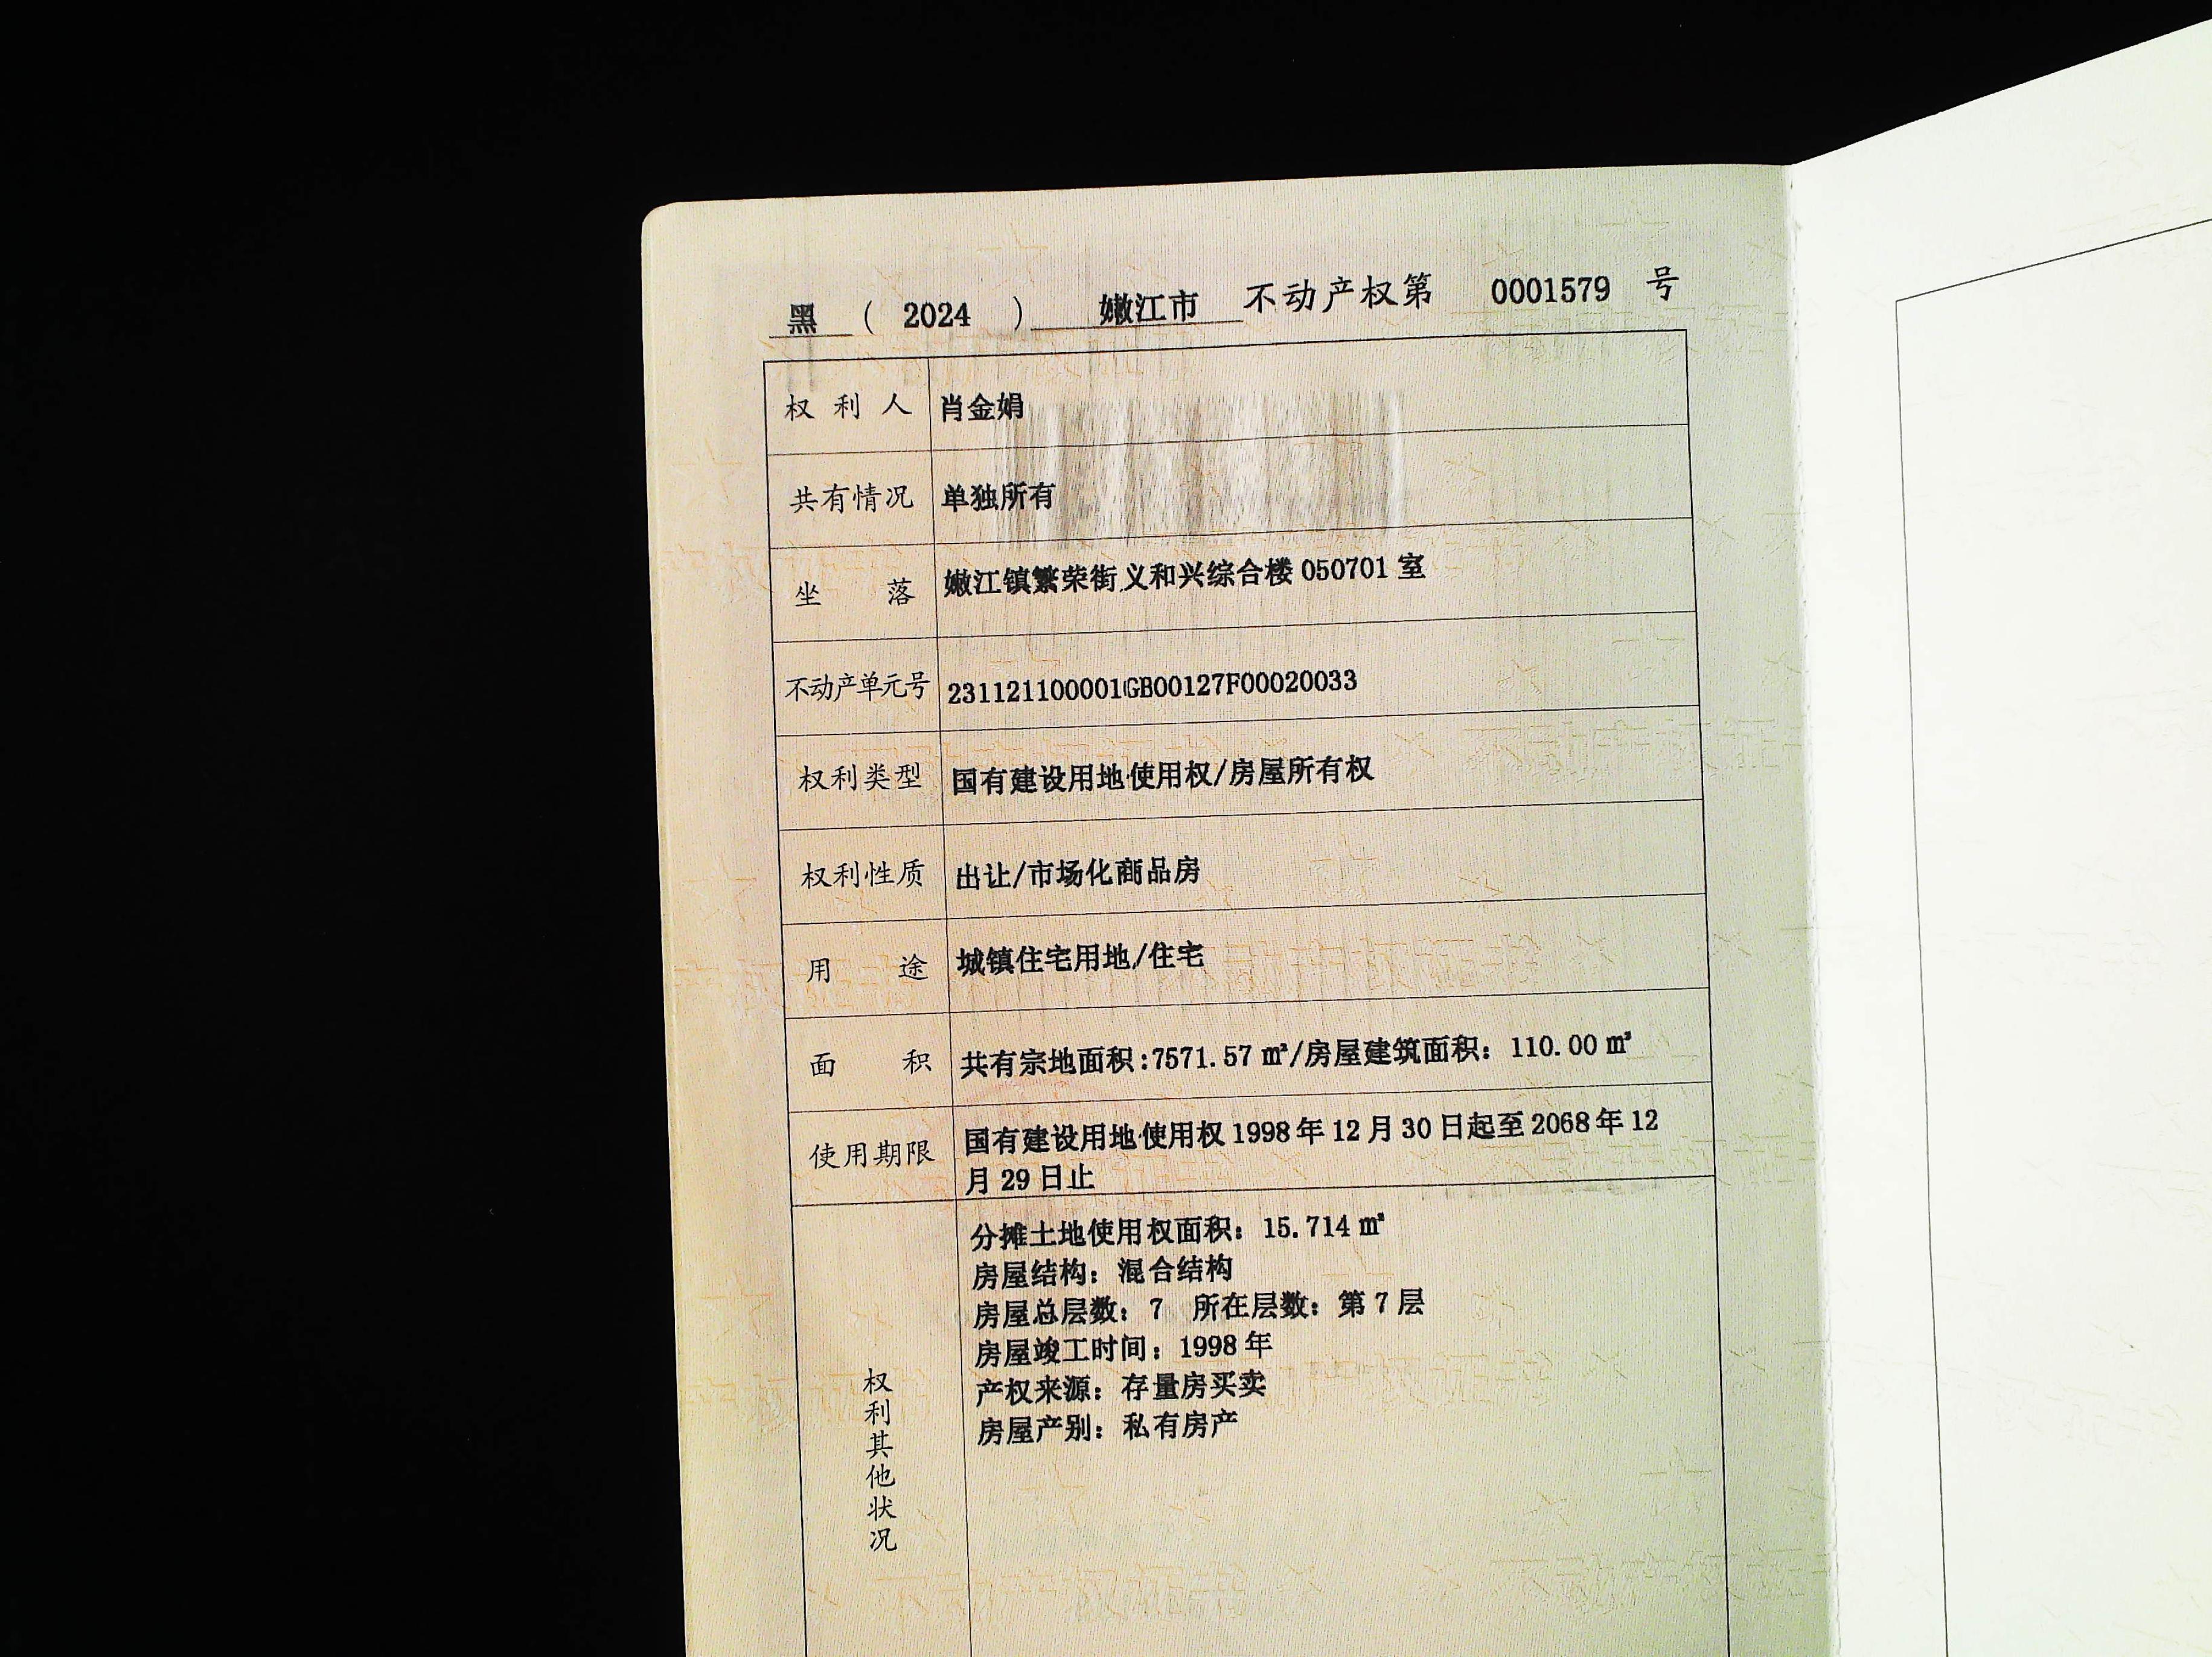 黑 ( 2024 ) 嫩江市 不动产权第 0001579 号
权利人 肖金娟
共有情况 单独所有
坐落 嫩江镇繁荣街义和兴综合楼 050701 室
不动产单元号 231121100001GB00127F00020033
权利类型 国有建设用地使用权/房屋所有权
权利性质 出让/市场化商品房
用途 城镇住宅用地/住宅
面积 共有宗地面积:7571.57 ㎡/房屋建筑面积：110.00 ㎡
使用期限 国有建设用地使用权 1998 年 12 月 30 日起至 2068 年 12
月 29 日止
权利其他状况
分摊土地使用权面积：15.714 ㎡
房屋结构：混合结构
房屋总层数：7 所在层数：第 7 层
房屋竣工时间：1998 年
产权来源：存量房买卖
房屋产别：私有房产